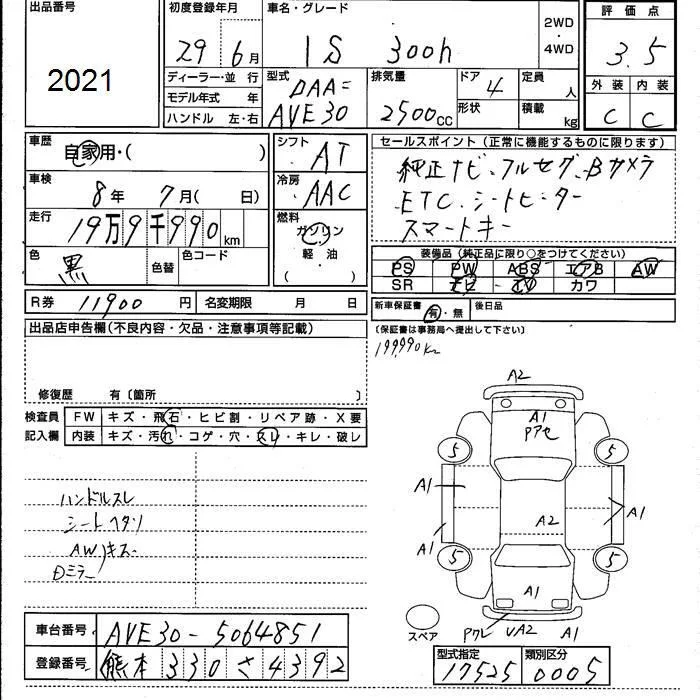 出品番号
2021
初度登録年月
29年 6月
車名・グレード
IS 300h
2WD・4WD
評価点
3.5
外装 内装
C C
ディーラー・並 行
モデル年式 年
ハンドル 左・右
型式
DAA=
AVE30
排気量
2500cc
ドア
4
形状
定員 人
積載 kg
車歴
自家用・( )
車検
8年 7月( 日)
走行
19万9千990km
色
黒
色替
色コード
シフト
AT
冷房
AAC
燃料
ガソリン
軽・油
( )
セールスポイント(正常に機能するものに限ります)
純正ナビ、フルセグ、Bカメラ
ETC、シートヒーター
スマートキー
装備品(純正品に限り○をつけてください)
PS PW ABS エアB AW
SR ナビ TV カワ
R券 11900円
名変期限 月 日
新車保証書 有・無
後日品
(保証書は事務局へ提出して下さい)
199,990Km
出品店申告欄(不良内容・欠品・注意事項等記載)
修復歴 有〔箇所 〕
検査員記入欄
FW キズ・飛石・ヒビ割・リペア跡・X要
内装 キズ・汚れ・コゲ・穴・スレ・キレ・破レ
ハンドルスレ
シートヘタリ
AWキズ
Dミラー
A2
A1
Pアセ
5
5
A1
A1
A2
A1
5
5
A1
スペア
Pワレ
UA2
A1
車台番号 AVE30-5064851
登録番号 熊本 330 さ 4392
型式指定
17525
類別区分
0005